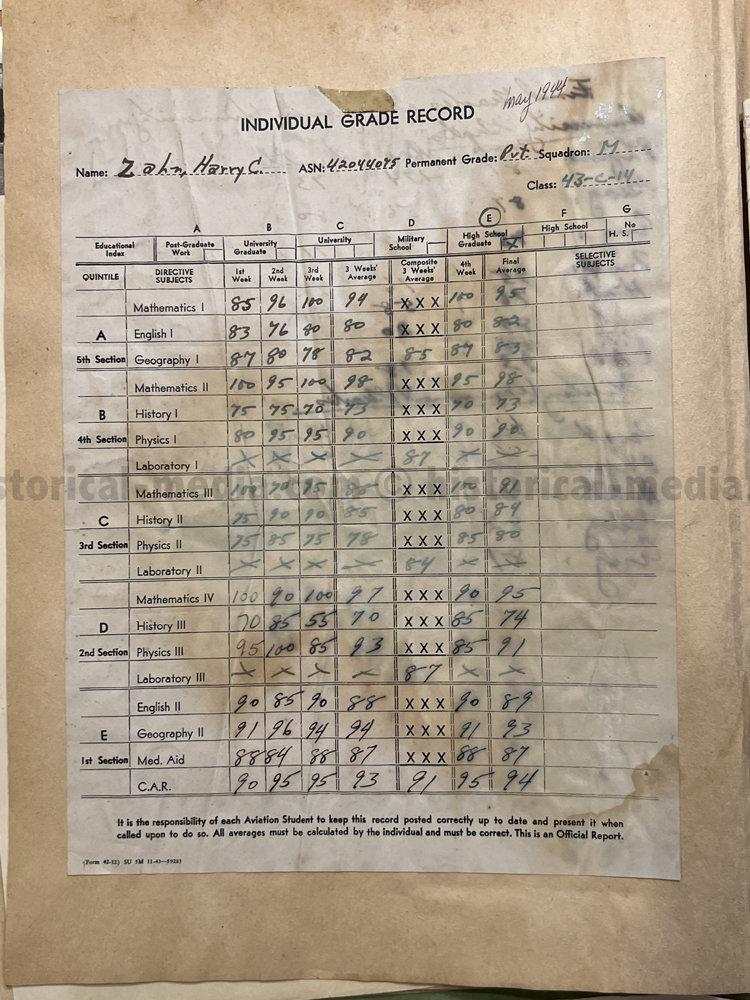 May 1944
INDIVIDUAL GRADE RECORD
Name: Zahn, Harry C. ASN: 42044095 Permanent Grade: Pvt Squadron: M
Class: 43-C-14
A B C D E F G
Educational Index Post-Graduate Work University Graduate University Military School High School Graduate X High School No H. S.
QUINTILE DIRECTIVE SUBJECTS 1st Week 2nd Week 3rd Week 3 Weeks' Average Composite 3 Weeks' Average 4th Week Final Average SELECTIVE SUBJECTS
Mathematics I 85 96 100 94 X X X 100 95
A English I 83 76 80 80 X X X 80 82
5th Section Geography I 87 80 78 82 85 87 83
Mathematics II 100 95 100 98 X X X 95 98
B History I 75 75 70 73 X X X 70 73
4th Section Physics I 80 95 95 90 X X X 90 90
Laboratory I X X X X 87 X X
Mathematics III 100 70 95 X X X 100 91
C History II 75 90 90 85 X X X 80 84
3rd Section Physics II 75 85 75 78 X X X 85 80
Laboratory II X X X X 84 X X
Mathematics IV 100 90 100 97 X X X 90 95
D History III 70 85 55 70 X X X 85 74
2nd Section Physics III 95 100 85 93 X X X 85 91
Laboratory III X X X X 87 X X
English II 90 85 90 88 X X X 90 89
E Geography II 91 96 94 94 X X X 91 93
1st Section Med. Aid 88 84 88 87 X X X 88 87
C.A.R. 90 95 95 93 91 95 94
It is the responsibility of each Aviation Student to keep this record posted correctly up to date and present it when
called upon to do so. All averages must be calculated by the individual and must be correct. This is an Official Report.
(Form 42-12) SU 5M 11-43—5928)
historical-media